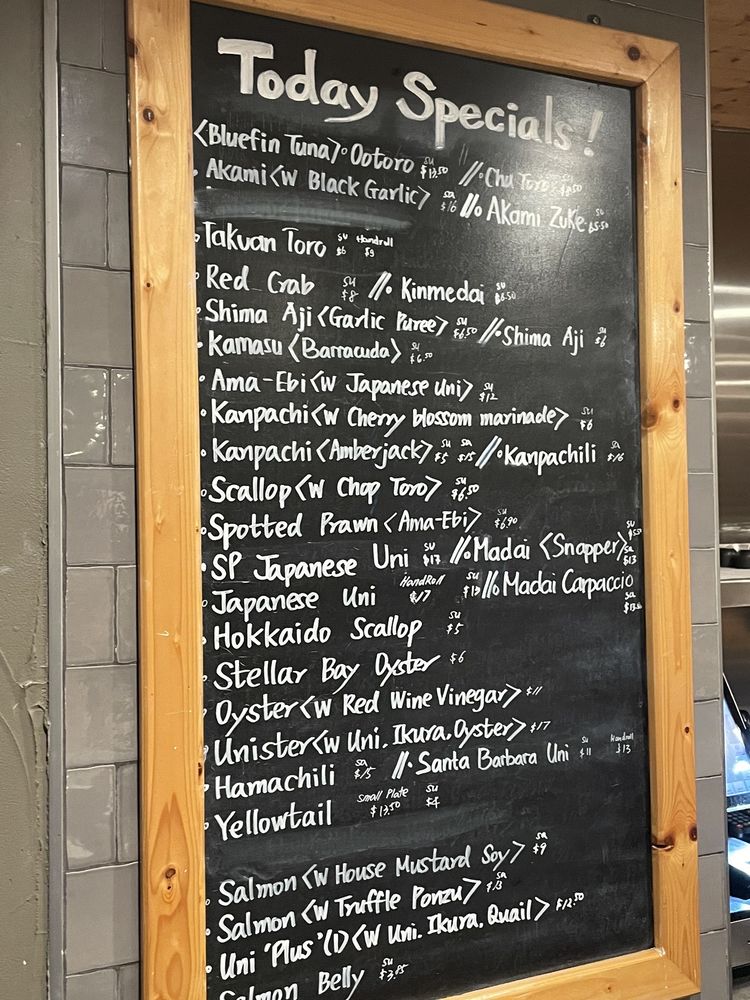 Today Specials!
<Bluefin Tuna> Ootoro su // Chu Toro su
Akami <W Black Garlic> sa $16 // Akami Zuke su $5.50
Takuan Toro su $6 Handroll $9
Red Crab su $8 // Kinmedai su $6.50
Shima Aji <Garlic Puree> su $6.50 // Shima Aji su $6
Kamasu <Barracuda> su $6.50
Ama-Ebi <W Japanese Uni> su $12
Kanpachi <W Cherry blossom marinade> su $6
Kanpachi <Amberjack> su $5 sa $15 // Kanpachili sa $16
Scallop <W Chop Toro> su $6.50
Spotted Prawn <Ama-Ebi> su $6.90
SP Japanese Uni su // Madai <Snapper> su sa $13
Japanese Uni HandRoll $17 su // Madai Carpaccio sa
Hokkaido Scallop su $5
Stellar Bay Oyster $6
Oyster <W Red Wine Vinegar> $11
Unister <W Uni. Ikura. Oyster> $17
Hamachili sa $15 // Santa Barbara Uni su $11 Handroll $13
Yellowtail Small Plate $13.50 su $4
Salmon <W House Mustard Soy> sa $9
Salmon <W Truffle Ponzu> sa $13
Uni 'Plus' (1) <W Uni. Ikura. Quail> $12.50
Salmon Belly su